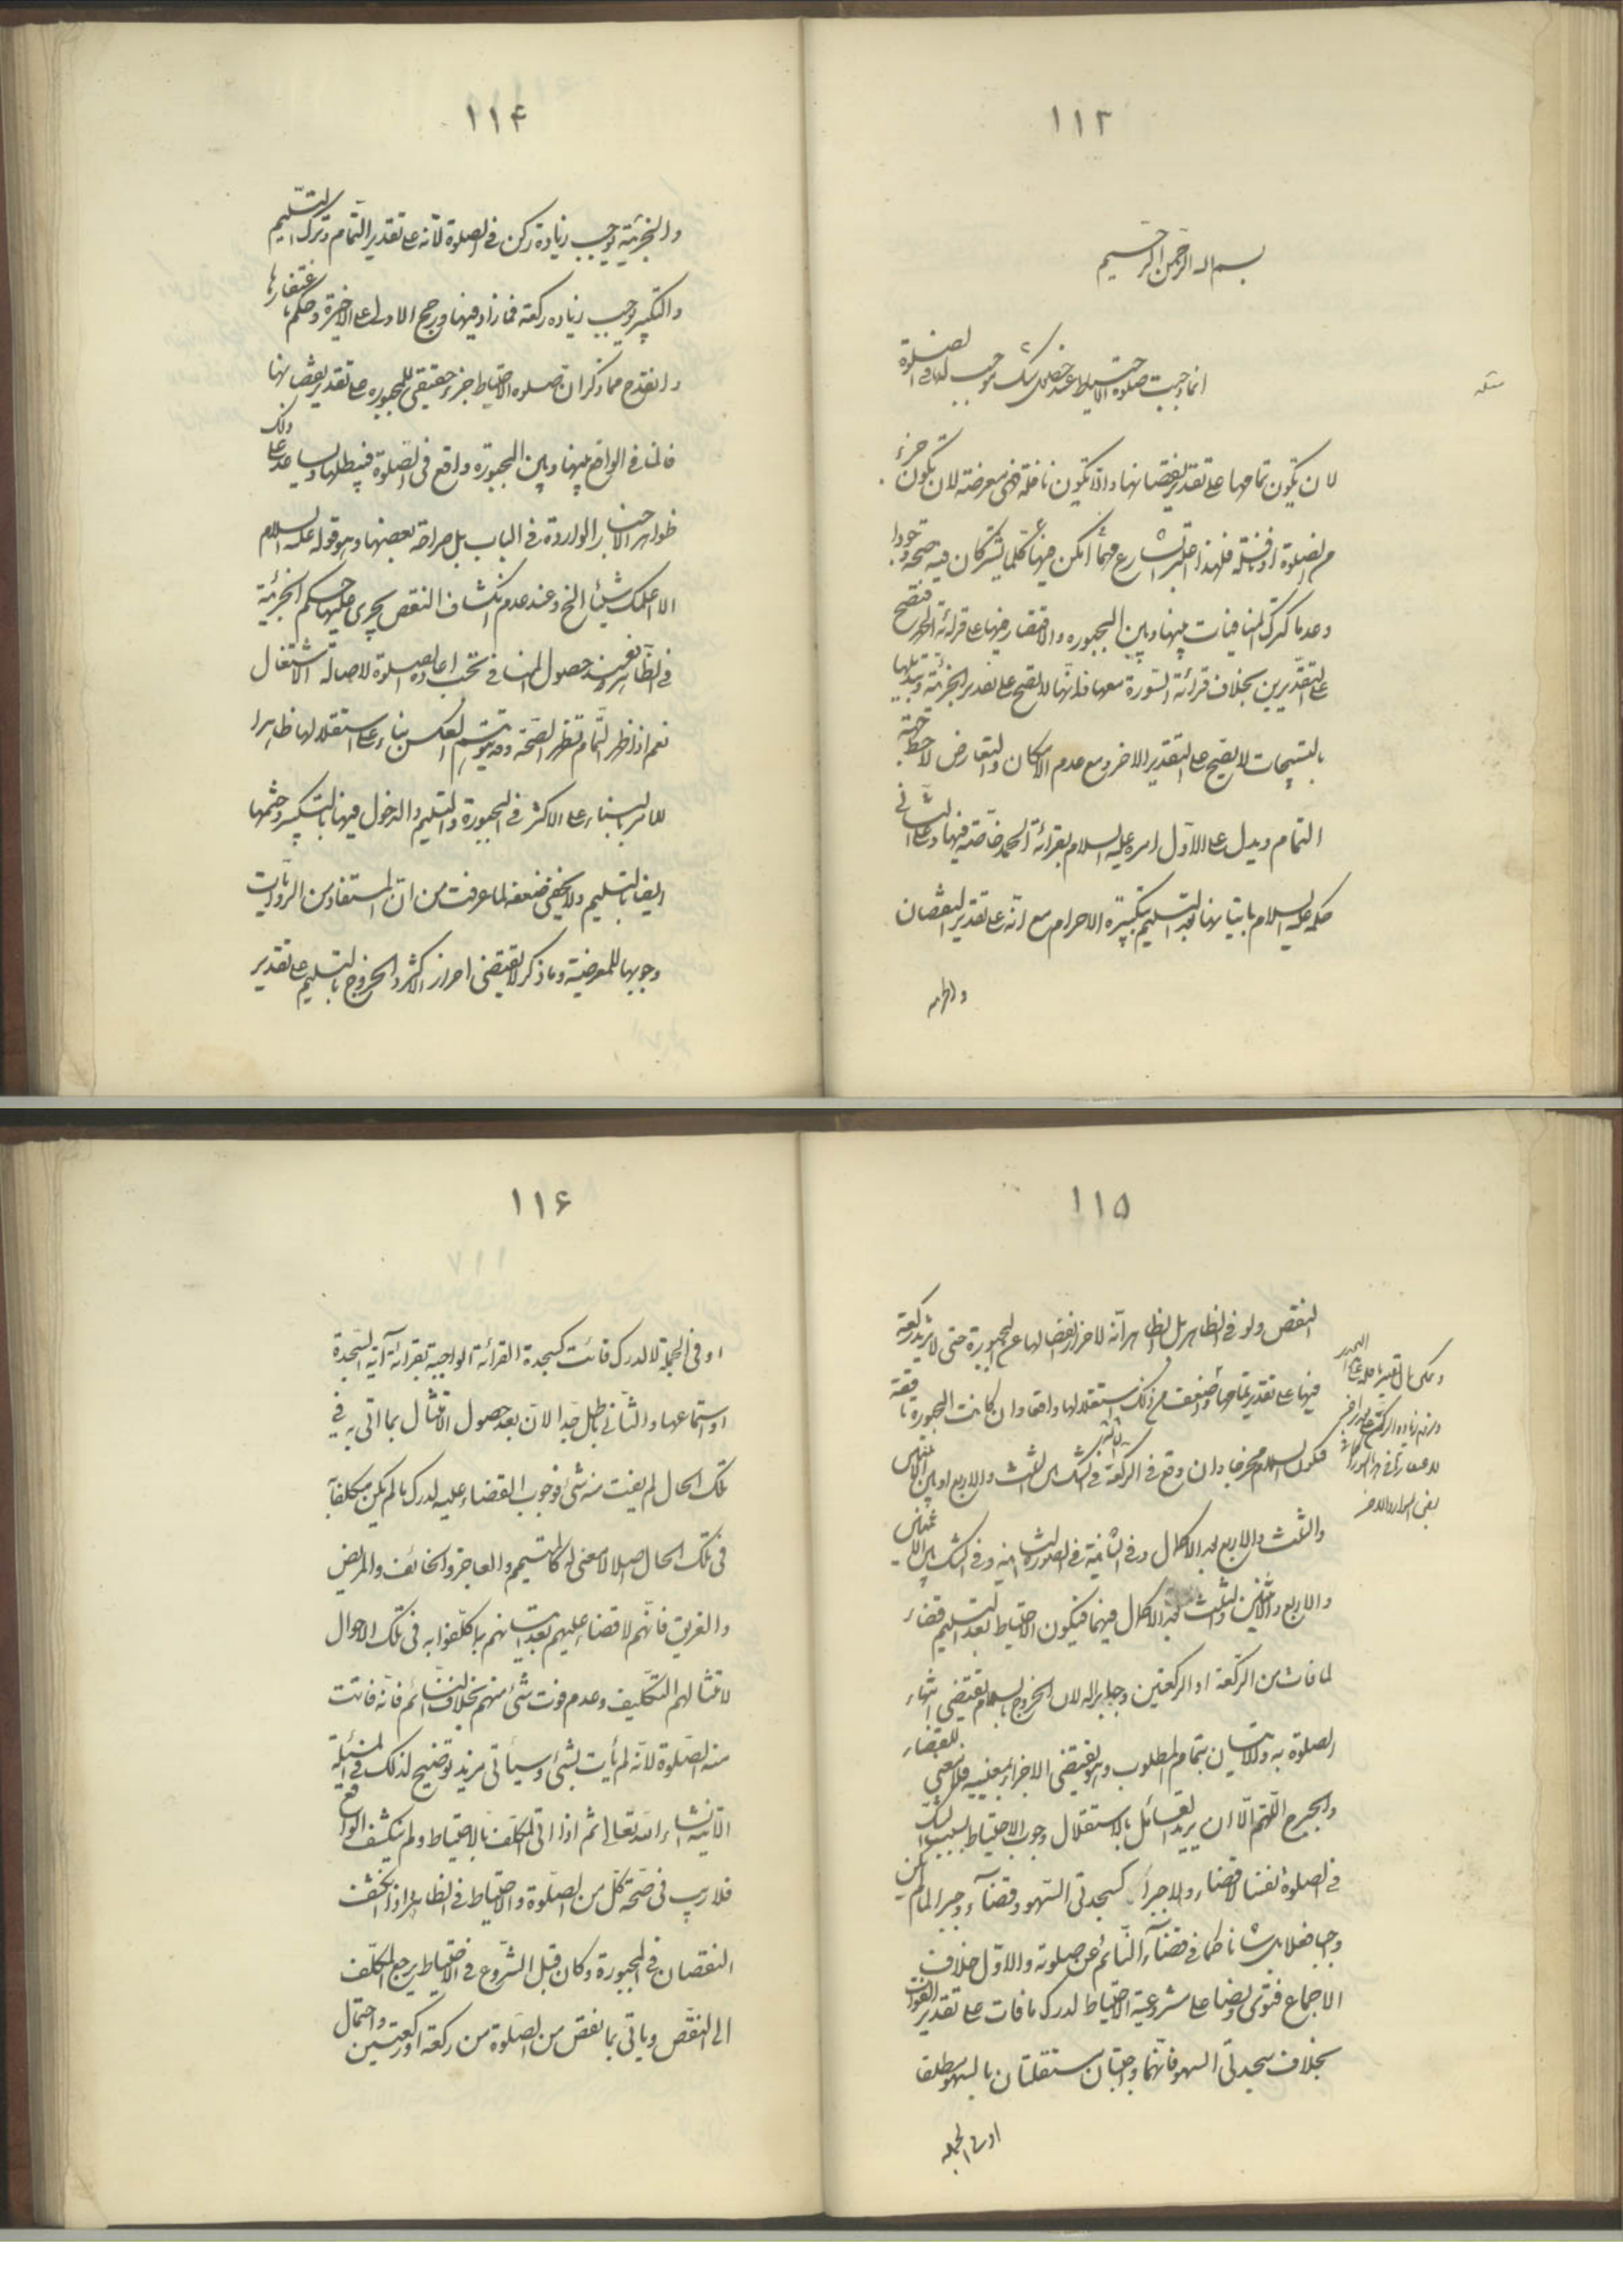 ١١٣
بسم الله الرحمن الرحيم
مسئلة
انما وجبت صلوة الاحتياط عند حصول شك موجب لها في الصلوة
لان يكون تمامها على تقدير نقصانها والا تكون نافلة فهى معرضة لان يكون جزء
من الصلوة او نافلة فلهذا اعتبر الشارع مهما امكن فيها كلما يشتركان فيه صحة وجودا
وعدما كترك المنافيات بينها وبين المجبوره والاقتصار فيها على قرائة الحمد فتصح
على التقديرين بخلاف قرائة السورة معها فانها لا تصح على تقدير الجزئية وتبديلها
بالتسبيحات لا يصح على التقدير الاخر ومع عدم الامكان والتعارض لاحظ جهة
التمام ويدل على الاول امره عليه السلام بقرائة الحمد خاصة فيها وعلى الثاني
حكمه عليه السلام باتيانها بعد التسليم بتكبيرة الاحرام مع انه على تقدير النقصان
والجزئية
١١۴
والجزئية يوجب زيادة ركن في الصلوة لانه على تقدير التمام وترك التسليم
والتكبير يوجب زياده ركعة فما زاد فيها ورجح الاولى على الاخيرة وحكم باغتفارها
وانقدح مما ذكر ان صلوه الاحتياط جزء حقيقي للمجبوره على تقدير نقصانها
فالمنافي الواقع بينها وبين المجبورة واقع في الصلوة فيبطلها ويساعد على ذلك
ظواهر الاخبار الواردة في الباب بل صراحة بعضها وهو قوله عليه السلام
الا اعلمك شيئا الخ وعند عدم انكشاف النقص يجرى عليها حكم الجزئية
في الظاهر فعند حصول المنافي تجب اعادة الصلوة لاصالة الاشتغال
نعم اذا ظهر التمام تظهر الصحة وقد يتوهم العكس بناء على استقلالها ظاهرا
للامر بالبناء على الاكثر في المجبورة والتسليم والدخول فيها بالتكبير وختمها
ايضا بالتسليم ولا يخفى ضعفه لما عرفت من ان المستفاد من الروايات
وجوبها للمعرضية وما ذكر لا يقتضى احراز الاكثر والخروج بالتسليم على تقدير
١١۵
النقص ولو في الظاهر بل الظاهر انه لاحراز انفصالها عن المجبورة حتى لا يزيد ركعة
فيها على تقدير تمامها واضعف من ذلك استقلالها واقعا وان كانت المجبورة ناقصة
فيكون السلام مخرجا وان وقع في الركعة الثالثة في الشك بين الثلث والاربع او بين الاثنين
والثلث والاربع بعد الاكمال وفي الثانية في الصورة الثانية وفي الشك بين الاثنين
والاربع والاثنين والثلث بعد الاكمال فيهما فيكون الاحتياط بعد التسليم قضاء
لما فات من الركعة او الركعتين وجابرا له لان الخروج بالسلام يقتضى انتهاء
الصلوة به والاتيان بتمام المطلوب وهو يقتضى الاجزاء بعينه فلا معنى للقضاء
والجبر اللهم الا ان يريد القائل بالاستقلال وجوب الاحتياط بسبب الشك
في الصلوة نفسا لا قضاء ولا جبرا كسجدتى السهو وقضاء وجبرا لما لم يكن
واجبا فعلا بل شانا كما في قضاء النائم عن صلوته والاول خلاف
الاجماع فتوى ونصا على مشروعية الاحتياط لدرك ما فات على تقدير الفوات
بخلاف سجدتى السهو فانهما واجبتان مستقلتان بالسهو مطلقا
او في الجملة
١١۶
او في الجملة لا لدرك فائت كسجدة القرائة الواجبة بقرائة آية السجدة
او استماعها والثاني باطل جدا لان بعد حصول الامتثال بما اتى به في
تلك الحال لم يفت منه شئ فوجوب القضاء عليه لدرك ما لم يكن مكلفا
في تلك الحال اصلا لا معنى له كالمتيمم والعاجز والخائف والمريض
والغريق فانهم لا قضاء عليهم بعد اتيانهم بما كلفوا به في تلك الاحوال
لامتثالهم التكليف وعدم فوت شئ منهم بخلاف النائم فانه فاتت
منه الصلوة لانه لم يأت بشئ وسيأتى مزيد توضيح لذلك في المسئلة
الآتية انشاء الله تعالى ثم اذا اتى المكلف بالاحتياط ولم ينكشف الواقع
فلا ريب في صحة كل من الصلوة والاحتياط في الظاهر واذا انكشف
النقصان في المجبورة وكان قبل الشروع في الاحتياط يرجع المكلف
الى النقص وياتى بما نقص من الصلوة من ركعة او ركعتين واحتمال